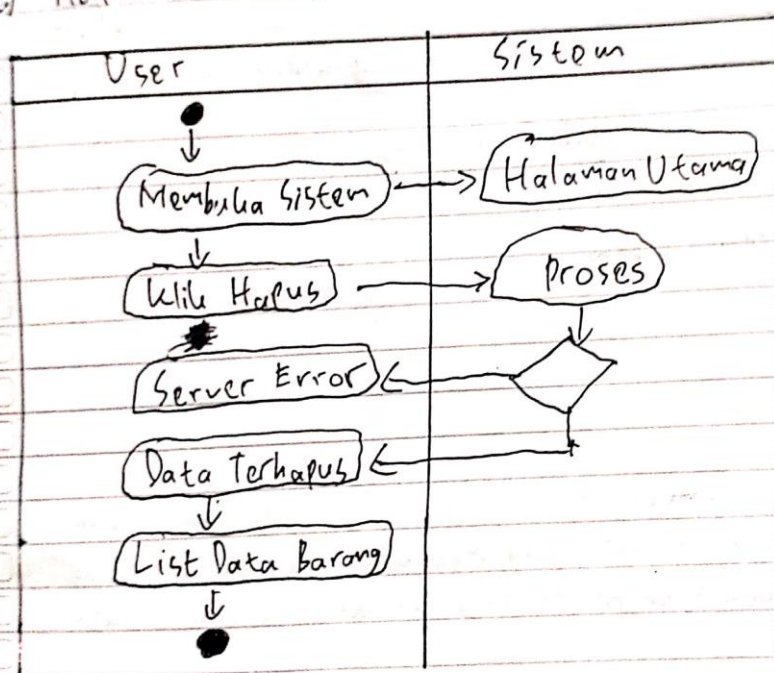 User
Sistem
Membuka Sistem
Halaman Utama
Klik Hapus
Proses
Server Error
Data Terhapus
List Data Barang